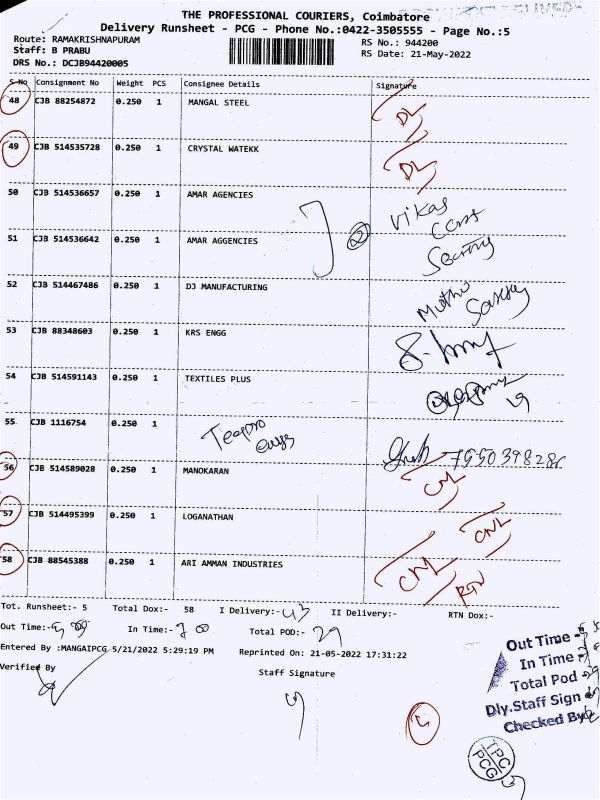 THE PROFESSIONAL COURIERS, Coimbatore
Delivery Runsheet - PCG - Phone No.:0422-3505555 - Page No.:5
Route: RAMAKRISHNAPURAM RS No.: 944200
Staff: B PRABU RS Date: 21-May-2022
DRS No.: DCJB94420005
S No Consignment No Weight PCS Consignee Details Signature
48 CJB 88254872 0.250 1 MANGAL STEEL DL
49 CJB 514535728 0.250 1 CRYSTAL WATEKK DL
50 CJB 514536657 0.250 1 AMAR AGENCIES Vikas
51 CJB 514536642 0.250 1 AMAR AGGENCIES
52 CJB 514467486 0.250 1 DJ MANUFACTURING
53 CJB 88348603 0.250 1 KRS ENGG
54 CJB 514591143 0.250 1 TEXTILES PLUS
55 CJB 1116754 0.250 1 Teapro
56 CJB 514589028 0.250 1 MANOKARAN CNL
57 CJB 514495399 0.250 1 LOGANATHAN CNL
58 CJB 88545388 0.250 1 ARI AMMAN INDUSTRIES CNL RTN
Tot. Runsheet:- 5 Total Dox:- 58 I Delivery:- 43 II Delivery:- RTN Dox:-
Out Time:- In Time:- 7 00 Total POD:- 29
Entered By :MANGAIPCG 5/21/2022 5:29:19 PM Reprinted On: 21-05-2022 17:31:22
Verified By Staff Signature
Out Time
In Time
Total Pod
Dly.Staff Sign
Checked By
TPC
PCG